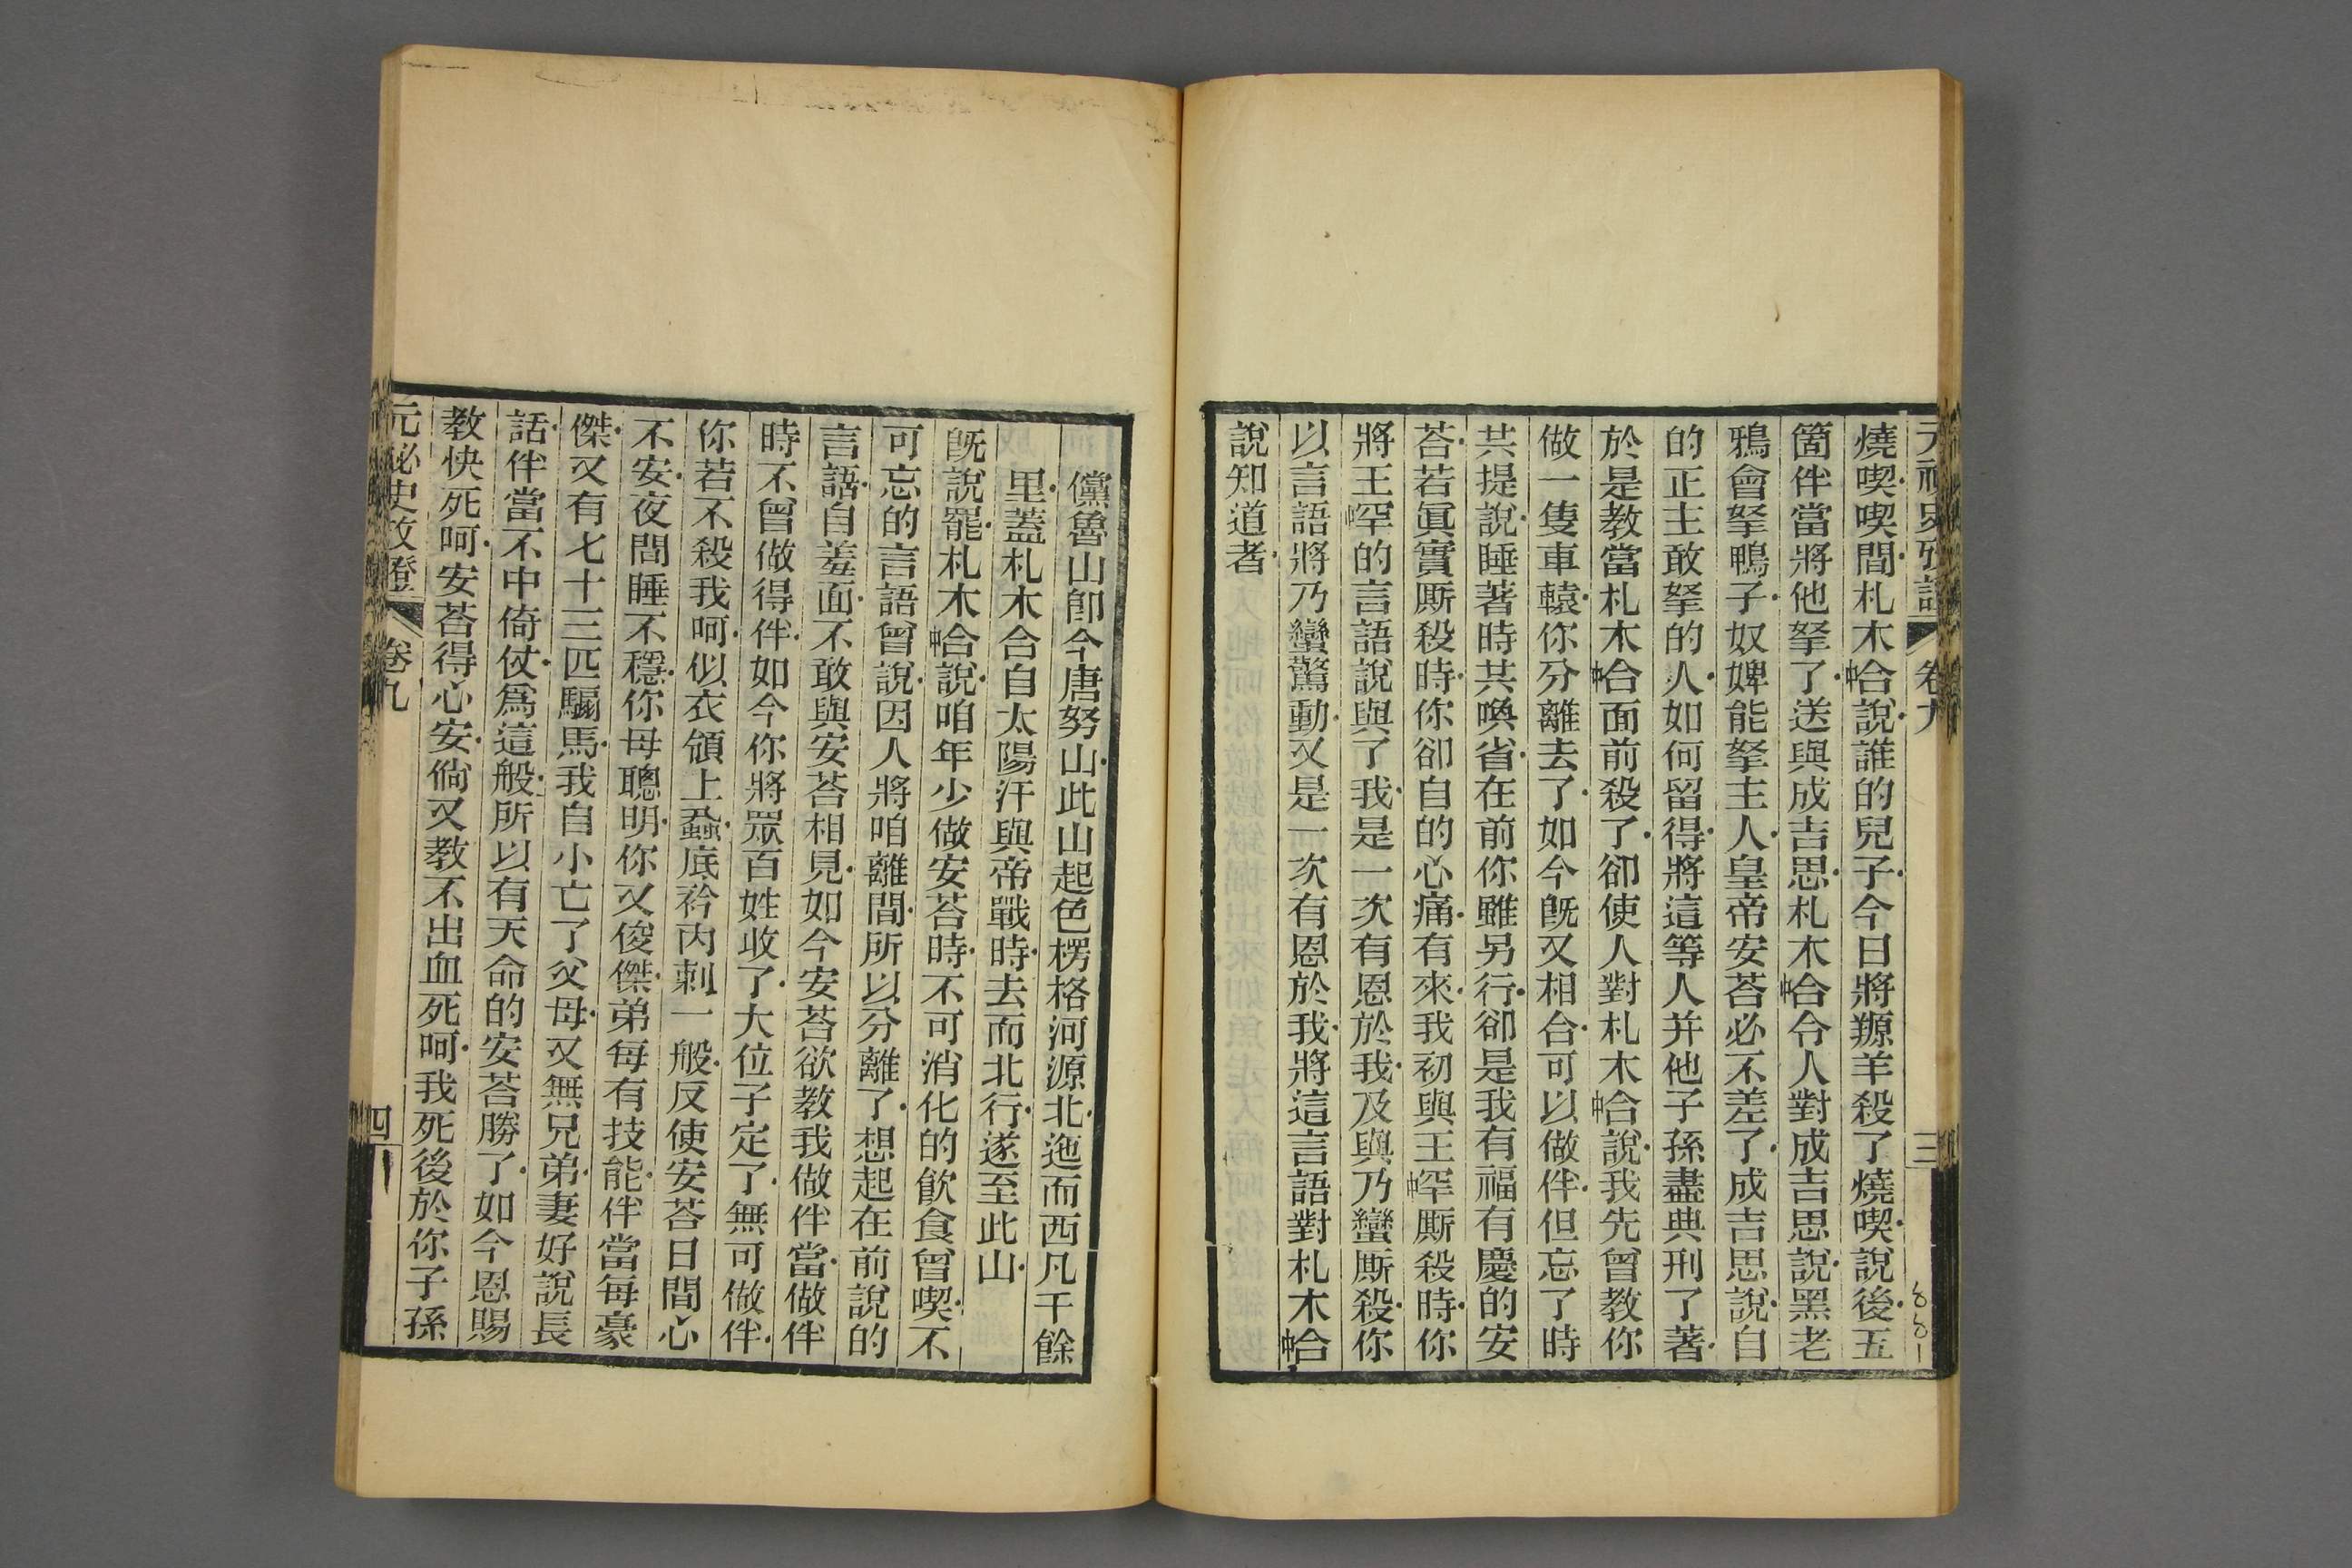 元祕史攷證 卷九 三
燒喫喫間札木中合說誰的兒子今日將羱羊殺了燒喫說後五
箇伴當將他拏了送與成吉思札木中合令人對成吉思說黑老
鴉會拏鴨子奴婢能拏主人皇帝安荅必不差了成吉思說自
的正主敢拏的人如何留得將這等人并他子孫盡典刑了著
於是教當札木中合面前殺了卻使人對札木中合說我先曾教你
做一隻車轅你分離去了如今旣又相合可以做伴但忘了時
共提說睡著時共喚省在前你雖另行卻是我有福有慶的安
荅若眞實厮殺時你卻自的心痛有來我初與王中罕厮殺時你
將王中罕的言語說與了我是一次有恩於我及與乃蠻厮殺你
以言語將乃蠻驚動又是一次有恩於我將這言語對札木中合
說知道者
儻魯山卽今唐努山此山起色楞格河源北迤而西凡千餘
里蓋札木合自太陽汗與帝戰時去而北行遂至此山
旣說罷札木中合說咱年少做安荅時不可消化的飮食曾喫不
可忘的言語曾說因人將咱離間所以分離了想起在前說的
言語自羞面不敢與安荅相見如今安荅欲教我做伴當做伴
時不曾做得伴如今你將眾百姓收了大位子定了無可做伴
你若不殺我呵似衣領上蝨底衿內刺一般反使安荅日間心
不安夜間睡不穩你母聰明你又俊傑弟每有技能伴當每豪
傑又有七十三匹騸馬我自小亡了父母又無兄弟妻好說長
話伴當不中倚仗爲這般所以有天命的安荅勝了如今恩賜
教快死呵安荅得心安倘又教不出血死呵我死後於你子孫
元祕史攷證 卷九 四